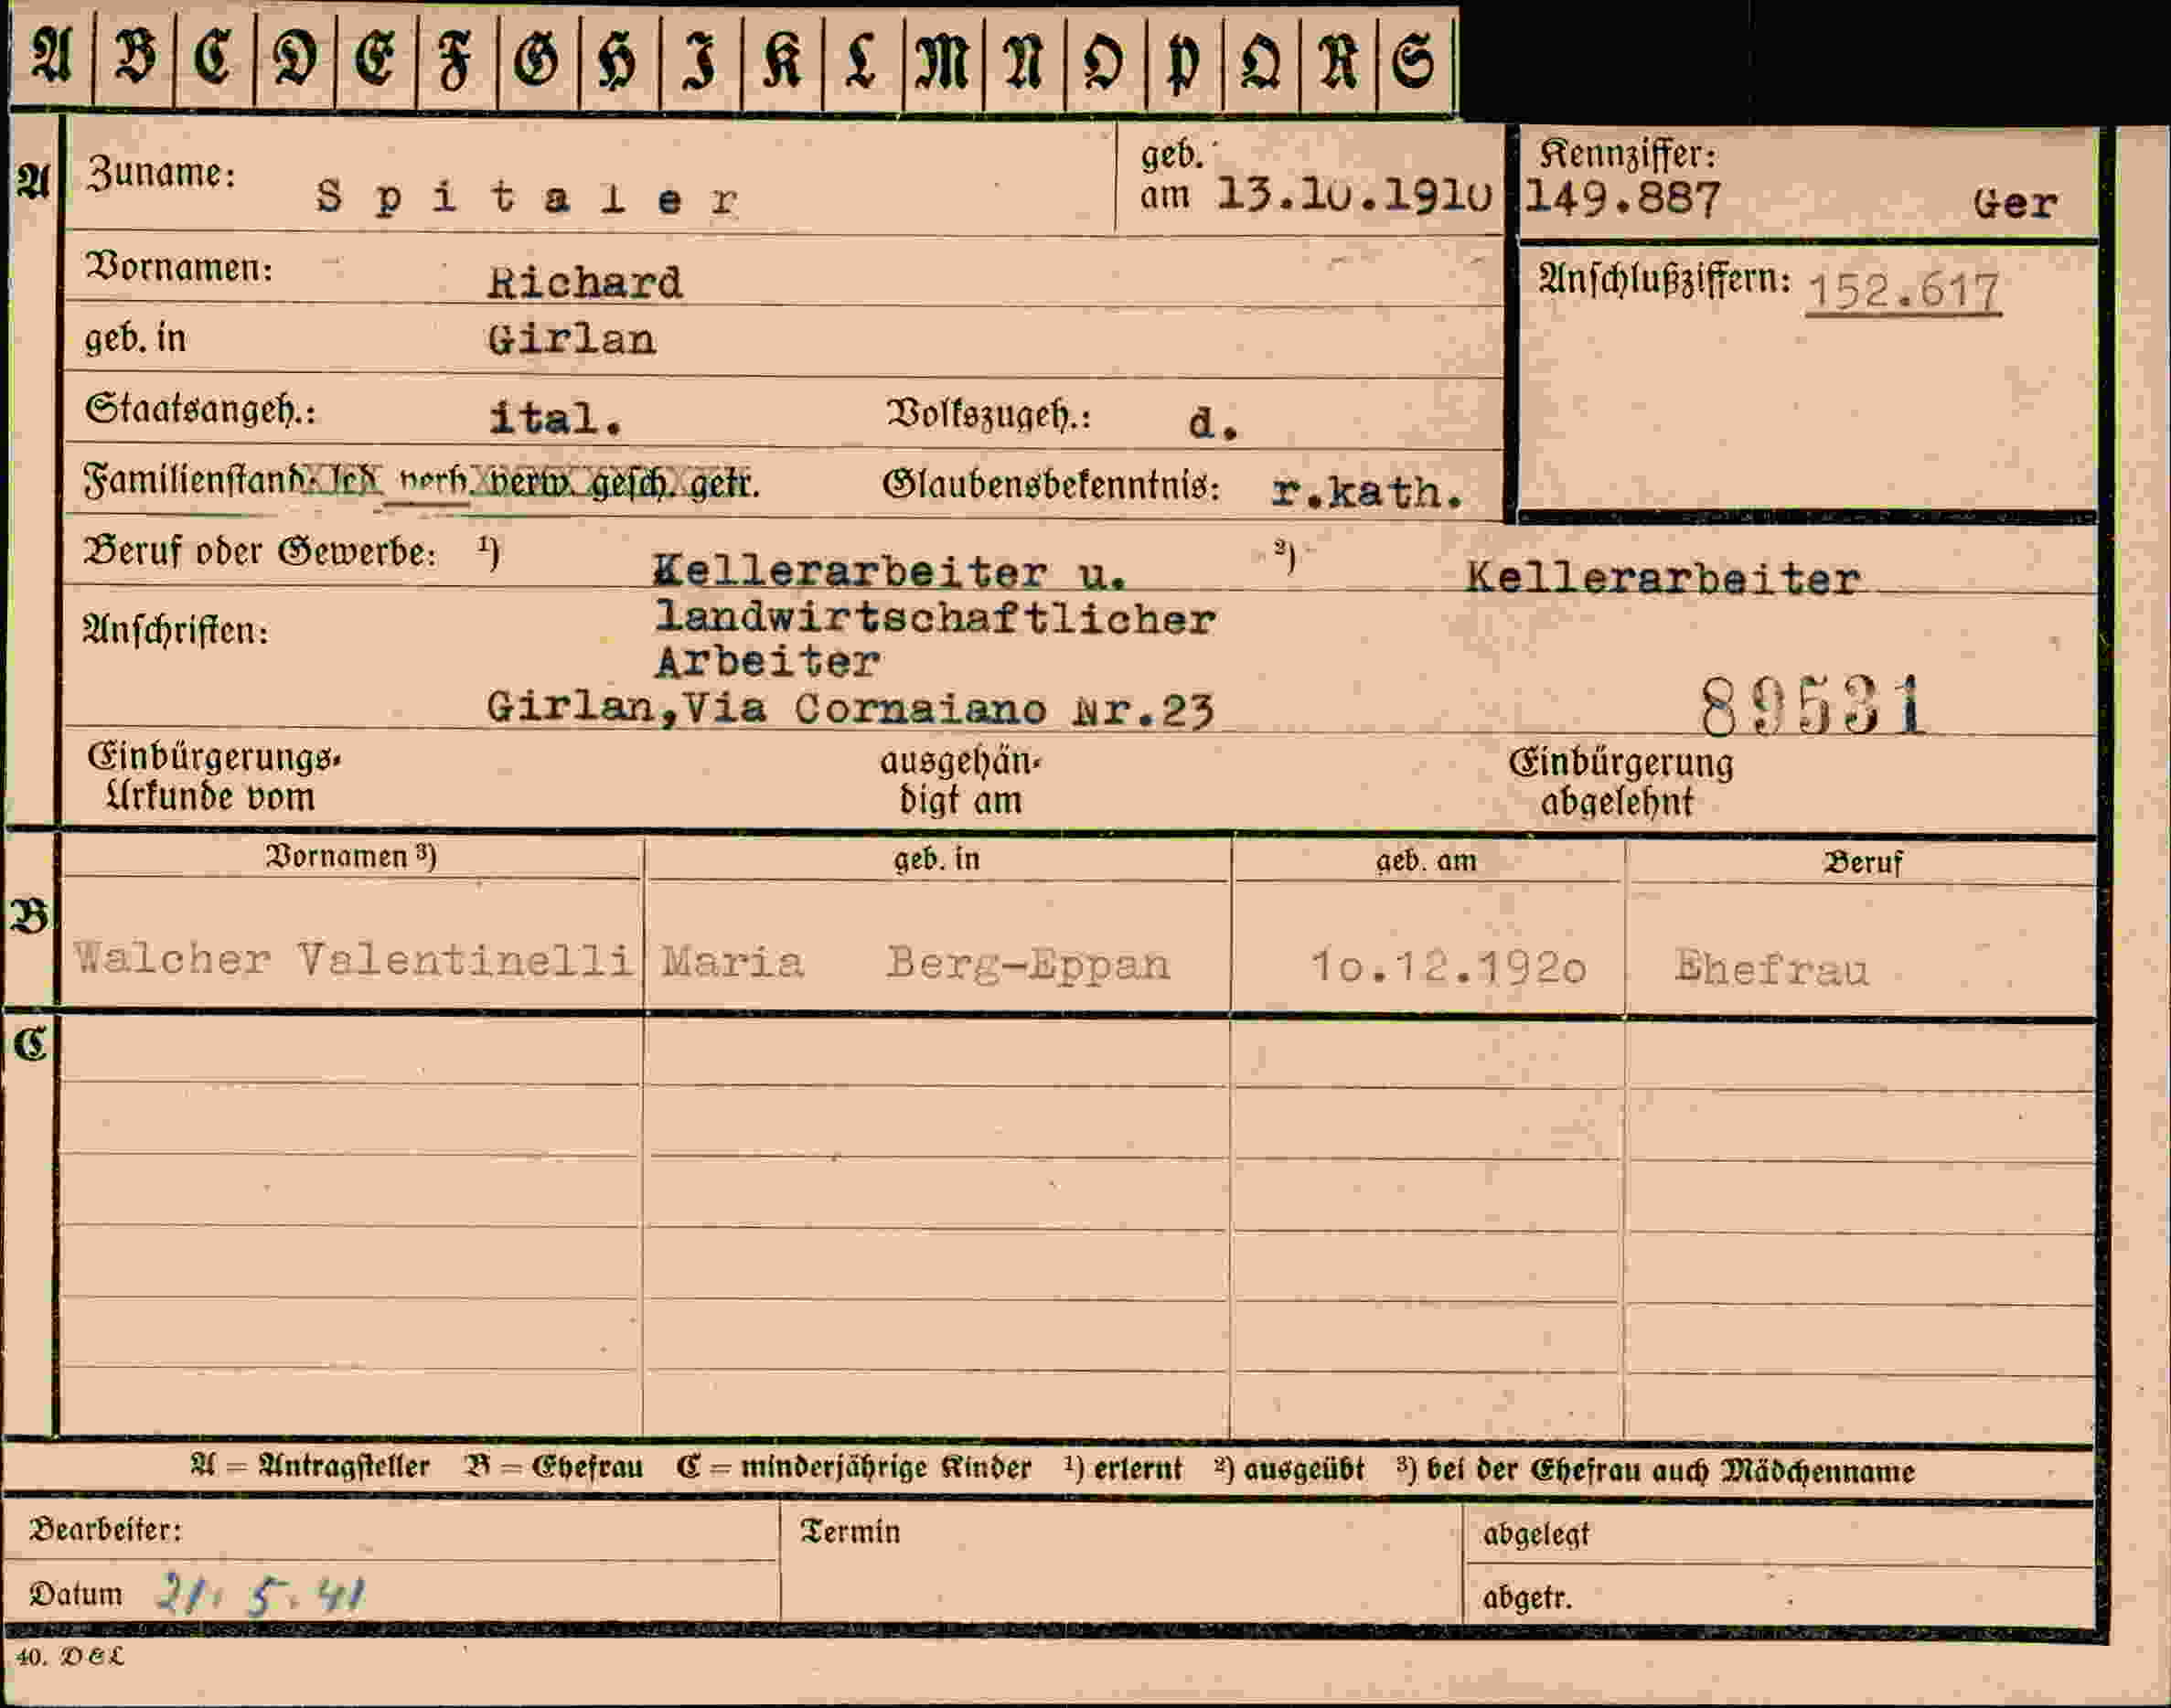 A B C D E F G H I K L M N O P Q R S
A Zuname: Spitaler geb. am 13.10.1910 Kennziffer: 149.887 Ger
Vornamen: Richard Anschlußziffern: 152.617
geb. in Girlan
Staatsangeh.: ital. Volkszugeh.: d.
Familienstand: led. verh. verw. gesch. getr. Glaubensbekenntnis: r.kath.
Beruf oder Gewerbe: ¹) Kellerarbeiter u. ²) Kellerarbeiter
Anschriften: landwirtschaftlicher
Arbeiter
Girlan,Via Cornaiano Nr.23 89531
Einbürgerungs- ausgehän- Einbürgerung
Urkunde vom digt am abgelehnt
Vornamen ³) geb. in geb. am Beruf
B
Walcher Valentinelli Maria Berg-Eppan 10.12.1920 Ehefrau
C
A = Antragsteller B = Ehefrau C = minderjährige Kinder ¹) erlernt ²) ausgeübt ³) bei der Ehefrau auch Mädchenname
Bearbeiter: Termin abgelegt
Datum 21. 5. 41 abgetr.
40. D&L